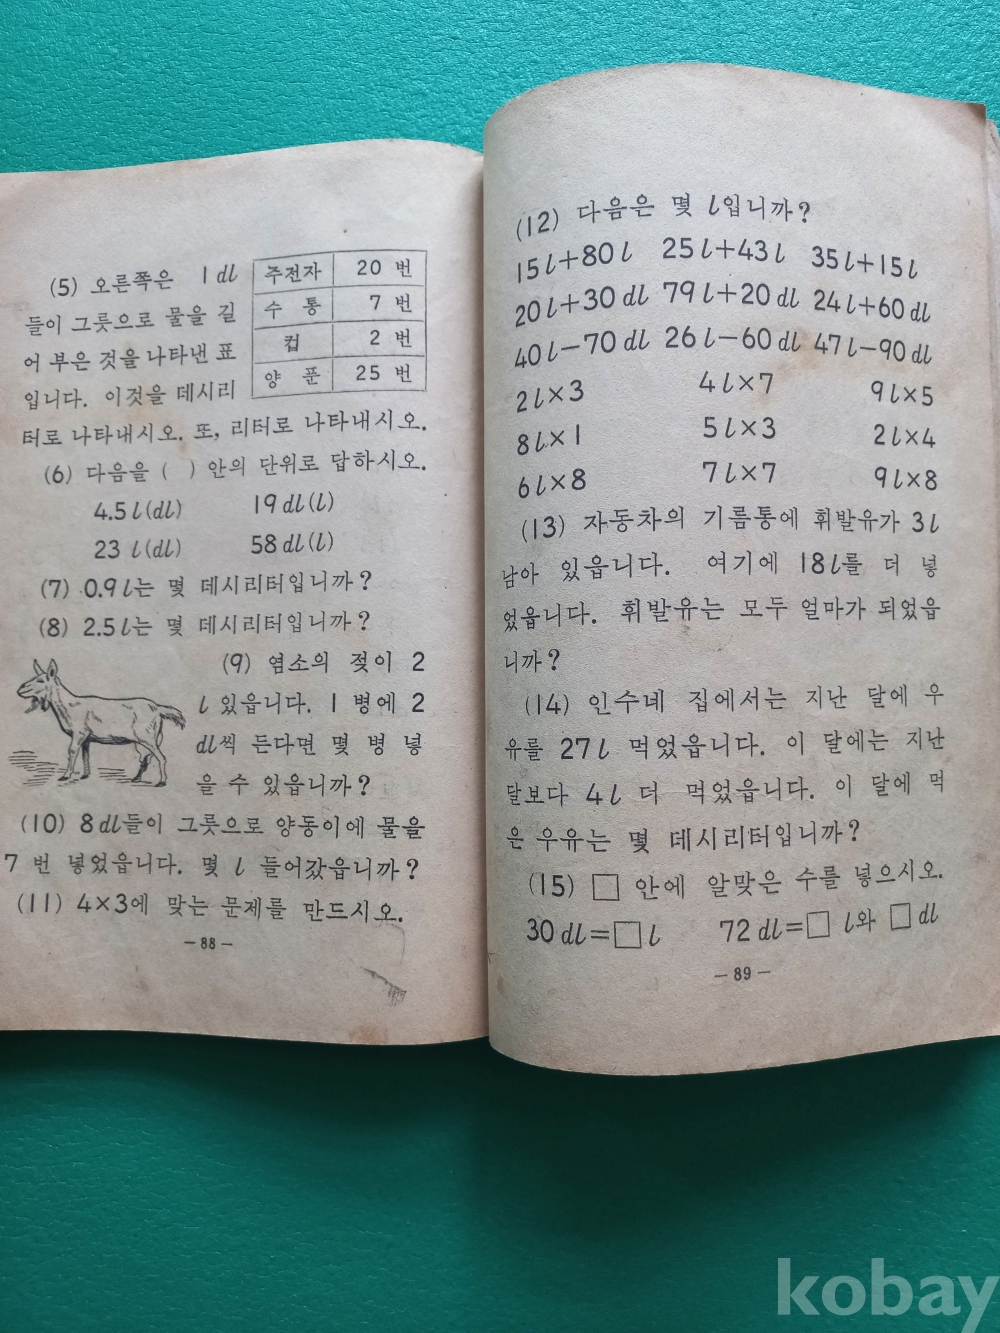 (5) 오른쪽은 1 dl
들이 그릇으로 물을 길
어 부은 것을 나타낸 표
입니다. 이것을 데시리
터로 나타내시오. 또, 리터로 나타내시오.
주전자 20 번
수 통 7 번
컵 2 번
양 푼 25 번
(6) 다음을 ( ) 안의 단위로 답하시오.
4.5 l(dl) 19 dl(l)
23 l(dl) 58 dl(l)
(7) 0.9 l는 몇 데시리터입니까?
(8) 2.5 l는 몇 데시리터입니까?
(9) 염소의 젖이 2
l 있읍니다. 1 병에 2
dl씩 든다면 몇 병 넣
을 수 있읍니까?
(10) 8 dl들이 그릇으로 양동이에 물을
7 번 넣었읍니다. 몇 l 들어갔읍니까?
(11) 4×3에 맞는 문제를 만드시오.
— 88 —
(12) 다음은 몇 l입니까?
15 l+80 l 25 l+43 l 35 l+15 l
20 l+30 dl 79 l+20 dl 24 l+60 dl
40 l−70 dl 26 l−60 dl 47 l−90 dl
2 l×3 4 l×7 9 l×5
8 l×1 5 l×3 2 l×4
6 l×8 7 l×7 9 l×8
(13) 자동차의 기름통에 휘발유가 3 l
남아 있읍니다. 여기에 18 l를 더 넣
었읍니다. 휘발유는 모두 얼마가 되었읍
니까?
(14) 인수네 집에서는 지난 달에 우
유를 27 l 먹었읍니다. 이 달에는 지난
달보다 4 l 더 먹었읍니다. 이 달에 먹
은 우유는 몇 데시리터입니까?
(15) □ 안에 알맞은 수를 넣으시오.
30 dl=□ l 72 dl=□ l와 □ dl
— 89 —
kobay